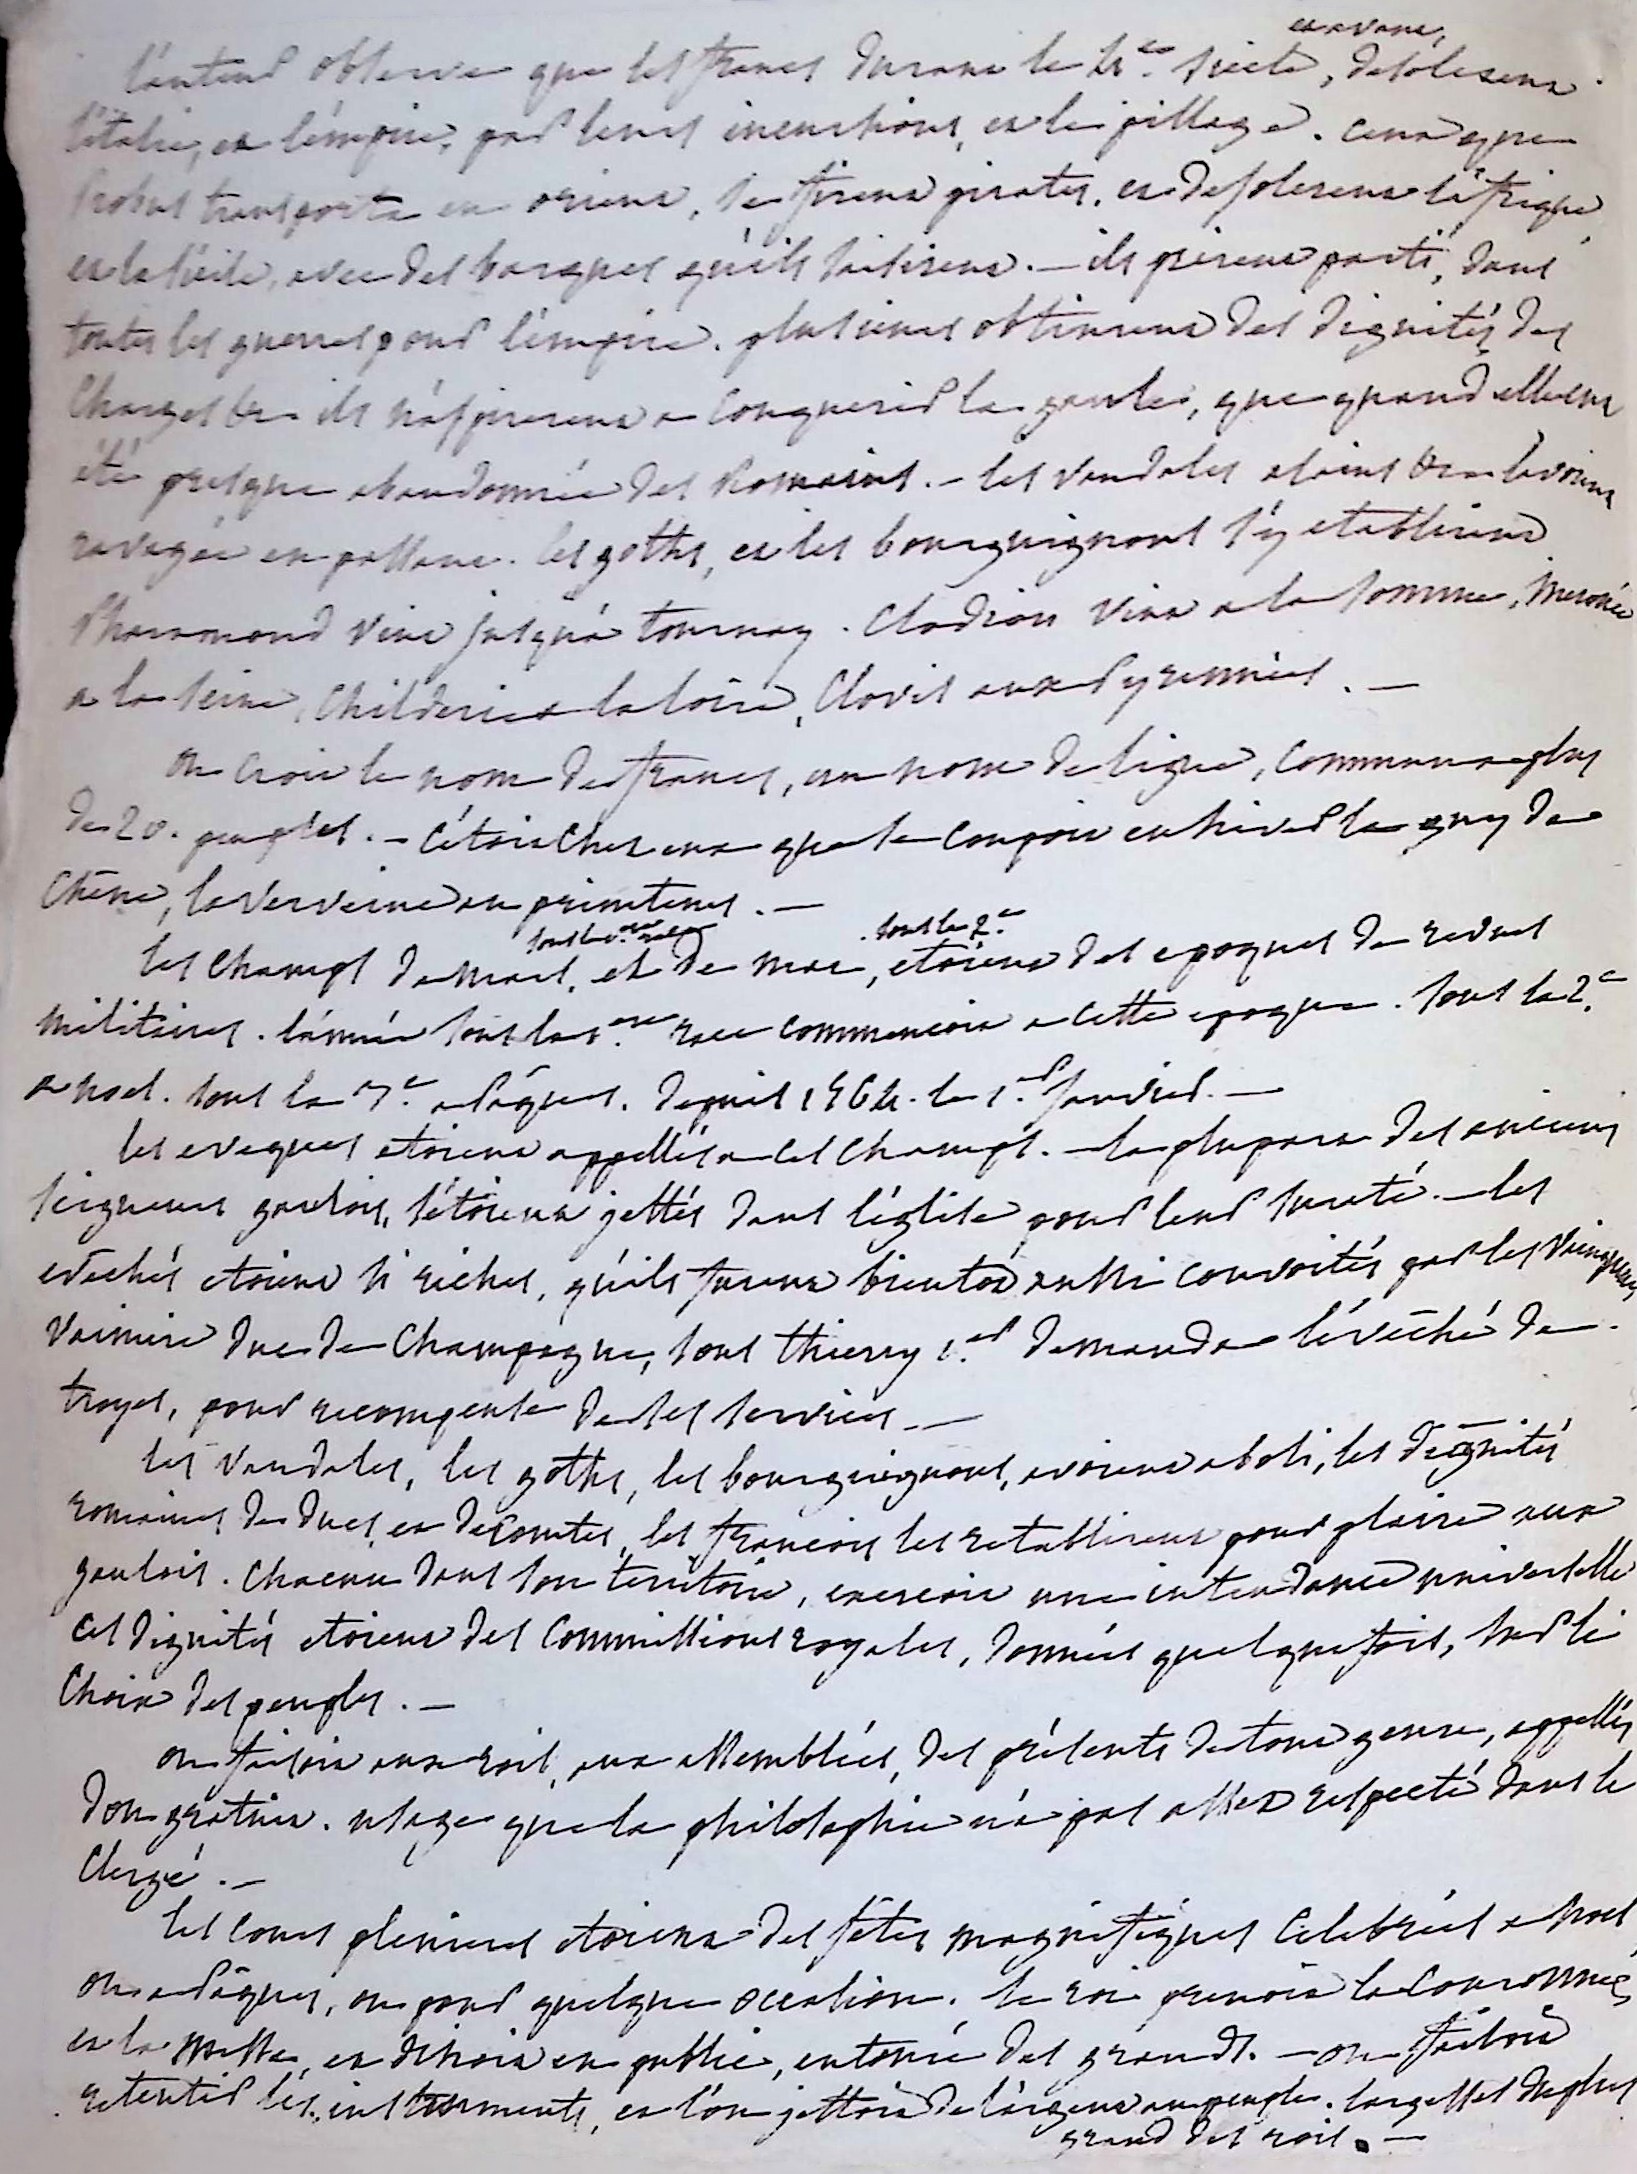 l'auteur observe que les francs durant le 4e. siecle, et avant, desolerent
l'italie, et l'empire, par leurs incursions, et le pillage. ceux que
Probus transporta en orient, se firent pirates, et desolerent l'afrique,
et la sicile, avec des barques qu'ils saisirent. — ils prirent parti, dans
toutes les guerres pour l'empire. plusieurs obtinrent des dignités, des
charges &c. ils n'aspirerent a conquerir la gaule, que quand elle eut
été presque abandonnée des Romains. — les vandales alains &c. l'avoient
ravagée en passant. les goths, et les bourguignons s'y etablirent
Pharamond vint jusqu'à tournay. Clodion vint a la somme, Merovée
a la seine, Childeric a la loire, Clovis aux pyrennées. —
on croit le nom de francs, un nom de ligue, commun a plus
de 20. peuples. — c'étoit chez eux que se coupoit en hiver le guy de
chêne, la verveine au printems. —
les champs de mars, sous la 1ere race et de mai, sous la 2.e etoient des epoques de revues
militaires. l'année sous la 1.ere race commencoit a cette epoque. sous la 2.e
a noel. sous la 3.e a Pâques. depuis 1564. le 1.er janvier. —
les eveques etoient appellés a ces champs. — la plupart des anciens
seigneurs gaulois, s'étoient jettés dans l'église pour leur sureté. — les
evêchés etoient si riches, qu'ils furent bientôt aussi convoités par les vainqueurs
Vaimire duc de Champagne, sous thierry 1.er demanda l'évêché de
troyes, pour recompense de ses services. —
les vandales, les goths, les bourguignons, avoient aboli, les dignités
romaines de ducs, et de comtes, les francois les retablirent pour plaire aux
gaulois. chacun dans son territoire, exercoit une intendance universelle
ces dignités etoient des commissions royales, données quelquefois, sur le
choix des peuples. —
on faisoit aux rois, aux assemblées, des présents de tout genre, appellés
don gratuit. usage que la philosophie n'a pas assez respecté dans le
clergé. —
les cours plenieres etoient des fêtes magnifiques celebrées a noel
ou a Pâques, ou pour quelque occasion. le roi prenoit la couronne,
et la messe, et dinoit en public, entouré des grands. — on faisoit
retentir les instruments, et l'on jettoit de l'argent au peuple. largesses du plus
grand des rois. —